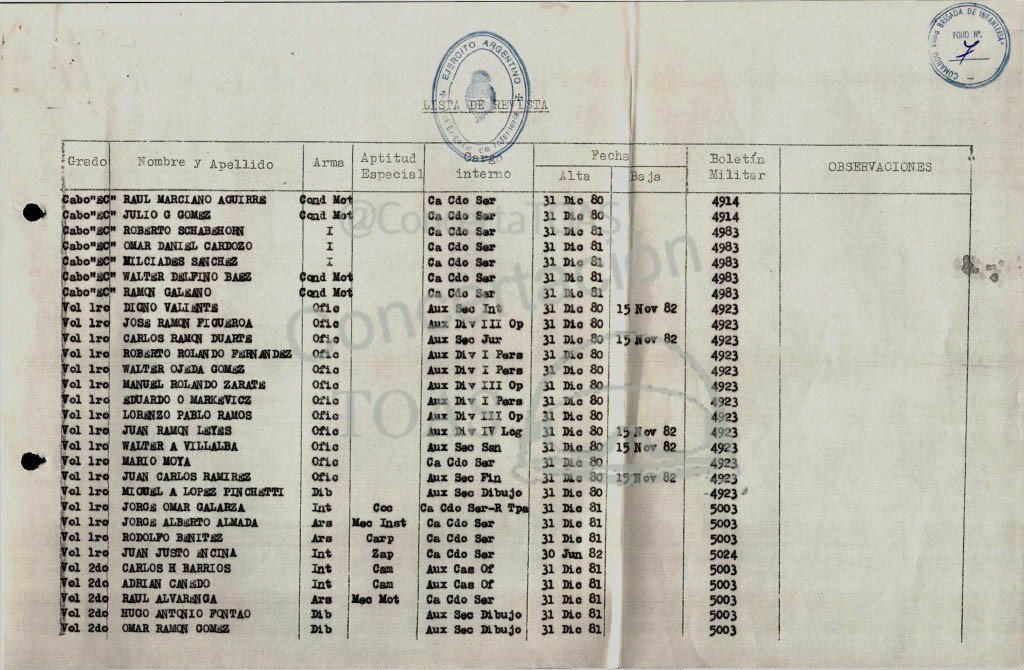 COMANDO BRIGADA DE INFANTERIA
FOLIO Nº.
7
EJERCITO ARGENTINO
Brigada de Infanteria
LISTA DE REVISTA
Grado Nombre y Apellido Arma Aptitud Especial Cargo interno Fecha Alta Baja Boletín Militar OBSERVACIONES
Cabo"EC" RAUL MARCIANO AGUIRRE Cond Mot Ca Cdo Ser 31 Dic 80 4914
Cabo"EC" JULIO G GOMEZ Cond Mot Ca Cdo Ser 31 Dic 80 4914
Cabo"EC" ROBERTO SCHABEHORN I Ca Cdo Ser 31 Dic 81 4983
Cabo"EC" OMAR DANIEL CARDOZO I Ca Cdo Ser 31 Dic 81 4983
Cabo"EC" MILCIADES SANCHEZ I Ca Cdo Ser 31 Dic 81 4983
Cabo"EC" WALTER DELFINO BAEZ Cond Mot Ca Cdo Ser 31 Dic 81 4983
Cabo"EC" RAMON GALEANO Cond Mot Ca Cdo Ser 31 Dic 81 4983
Vol 1ro DIGNO VALIENTE Ofic Aux Sec Int 31 Dic 80 15 Nov 82 4923
Vol 1ro JOSE RAMON FIGUEROA Ofic Aux Div III Op 31 Dic 80 4923
Vol 1ro CARLOS RAMON DUARTE Ofic Aux Sec Jur 31 Dic 80 15 Nov 82 4923
Vol 1ro ROBERTO ROLANDO FERNANDEZ Ofic Aux Div I Pers 31 Dic 80 4923
Vol 1ro WALTER OJEDA GOMEZ Ofic Aux Div I Pers 31 Dic 80 4923
Vol 1ro MANUEL ROLANDO ZARATE Ofic Aux Div III Op 31 Dic 80 4923
Vol 1ro EDUARDO O MARKEVICZ Ofic Aux Div I Pers 31 Dic 80 4923
Vol 1ro LORENZO PABLO RAMOS Ofic Aux Div III Op 31 Dic 80 4923
Vol 1ro JUAN RAMON LEYES Ofic Aux Div IV Log 31 Dic 80 15 Nov 82 4923
Vol 1ro WALTER A VILLALBA Ofic Aux Sec San 31 Dic 80 15 Nov 82 4923
Vol 1ro MARIO MOYA Ofic Ca Cdo Ser 31 Dic 80 4923
Vol 1ro JUAN CARLOS RAMIREZ Ofic Aux Sec Fin 31 Dic 80 15 Nov 82 4923
Vol 1ro MIGUEL A LOPEZ PINCHETTI Dib Aux Sec Dibujo 31 Dic 80 4923
Vol 1ro JORGE OMAR GALARZA Int Coc Ca Cdo Ser-R Tpa 31 Dic 81 5003
Vol 1ro JORGE ALBERTO ALMADA Ars Mec Inst Ca Cdo Ser 31 Dic 81 5003
Vol 1ro RODOLFO BENITEZ Ars Carp Ca Cdo Ser 31 Dic 81 5003
Vol 1ro JUAN JUSTO ENCINA Int Zap Ca Cdo Ser 30 Jun 82 5024
Vol 2do CARLOS H BARRIOS Int Cam Aux Cas Of 31 Dic 81 5003
Vol 2do ADRIAN CANEDO Int Cam Aux Cas Of 31 Dic 81 5003
Vol 2do RAUL ALVARENGA Ars Mec Mot Ca Cdo Ser 31 Dic 81 5003
Vol 2do HUGO ANTONIO FONTAO Dib Aux Sec Dibujo 31 Dic 81 5003
Vol 2do OMAR RAMON GOMEZ Dib Aux Sec Dibujo 31 Dic 81 5003